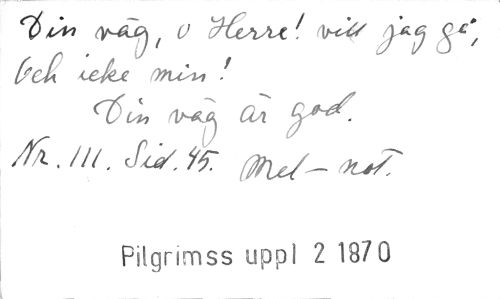 Din väg, o Herre! vill jag gå,
Och icke min!
Din väg är god.
Nr. 111. Sid. 45. Mel-not.
Pilgrimss uppl 2 1870